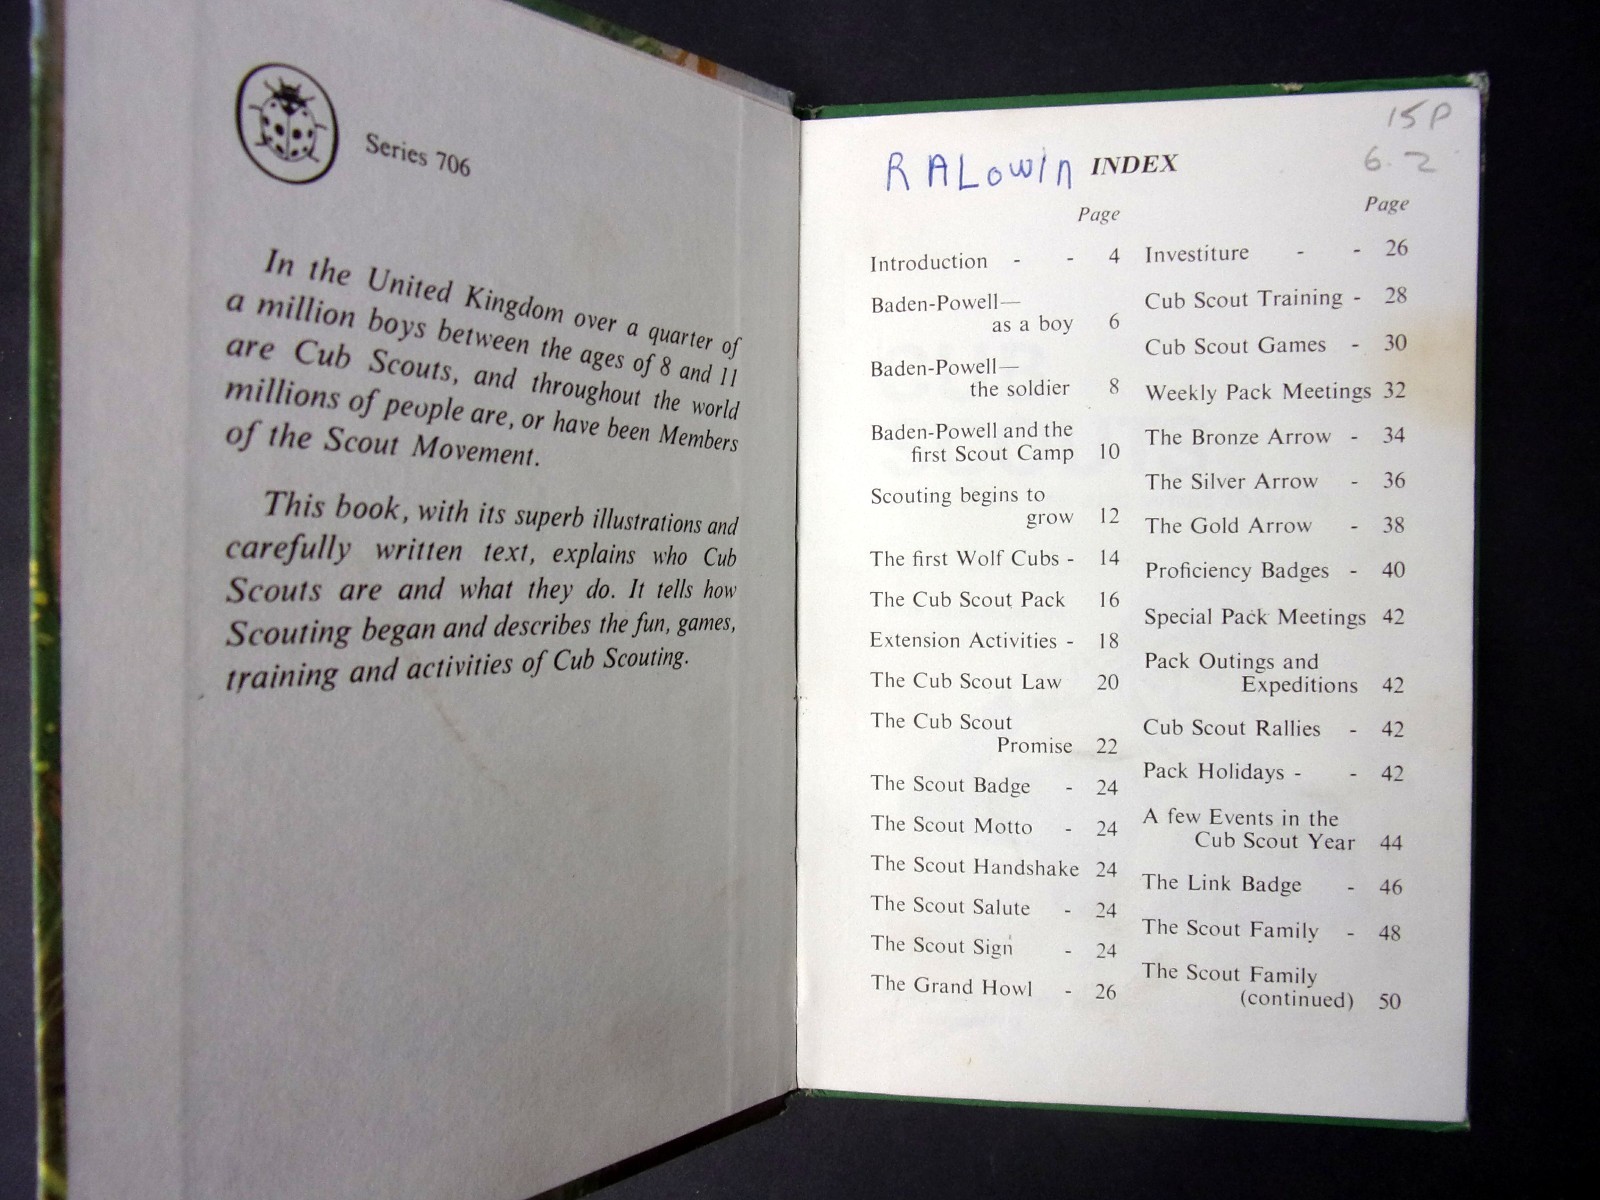 Series 706
In the United Kingdom over a quarter of
a million boys between the ages of 8 and 11
are Cub Scouts, and throughout the world
millions of people are, or have been Members
of the Scout Movement.
This book, with its superb illustrations and
carefully written text, explains who Cub
Scouts are and what they do. It tells how
Scouting began and describes the fun, games,
training and activities of Cub Scouting.
15P
6.2
R A Lowin INDEX
Page
Introduction - - 4
Baden-Powell—
as a boy 6
Baden-Powell—
the soldier 8
Baden-Powell and the
first Scout Camp 10
Scouting begins to
grow 12
The first Wolf Cubs - 14
The Cub Scout Pack 16
Extension Activities - 18
The Cub Scout Law 20
The Cub Scout
Promise 22
The Scout Badge - 24
The Scout Motto - 24
The Scout Handshake 24
The Scout Salute - 24
The Scout Sign - 24
The Grand Howl - 26
Page
Investiture - - 26
Cub Scout Training - 28
Cub Scout Games - 30
Weekly Pack Meetings 32
The Bronze Arrow - 34
The Silver Arrow - 36
The Gold Arrow - 38
Proficiency Badges - 40
Special Pack Meetings 42
Pack Outings and
Expeditions 42
Cub Scout Rallies - 42
Pack Holidays - - 42
A few Events in the
Cub Scout Year 44
The Link Badge - 46
The Scout Family - 48
The Scout Family
(continued) 50